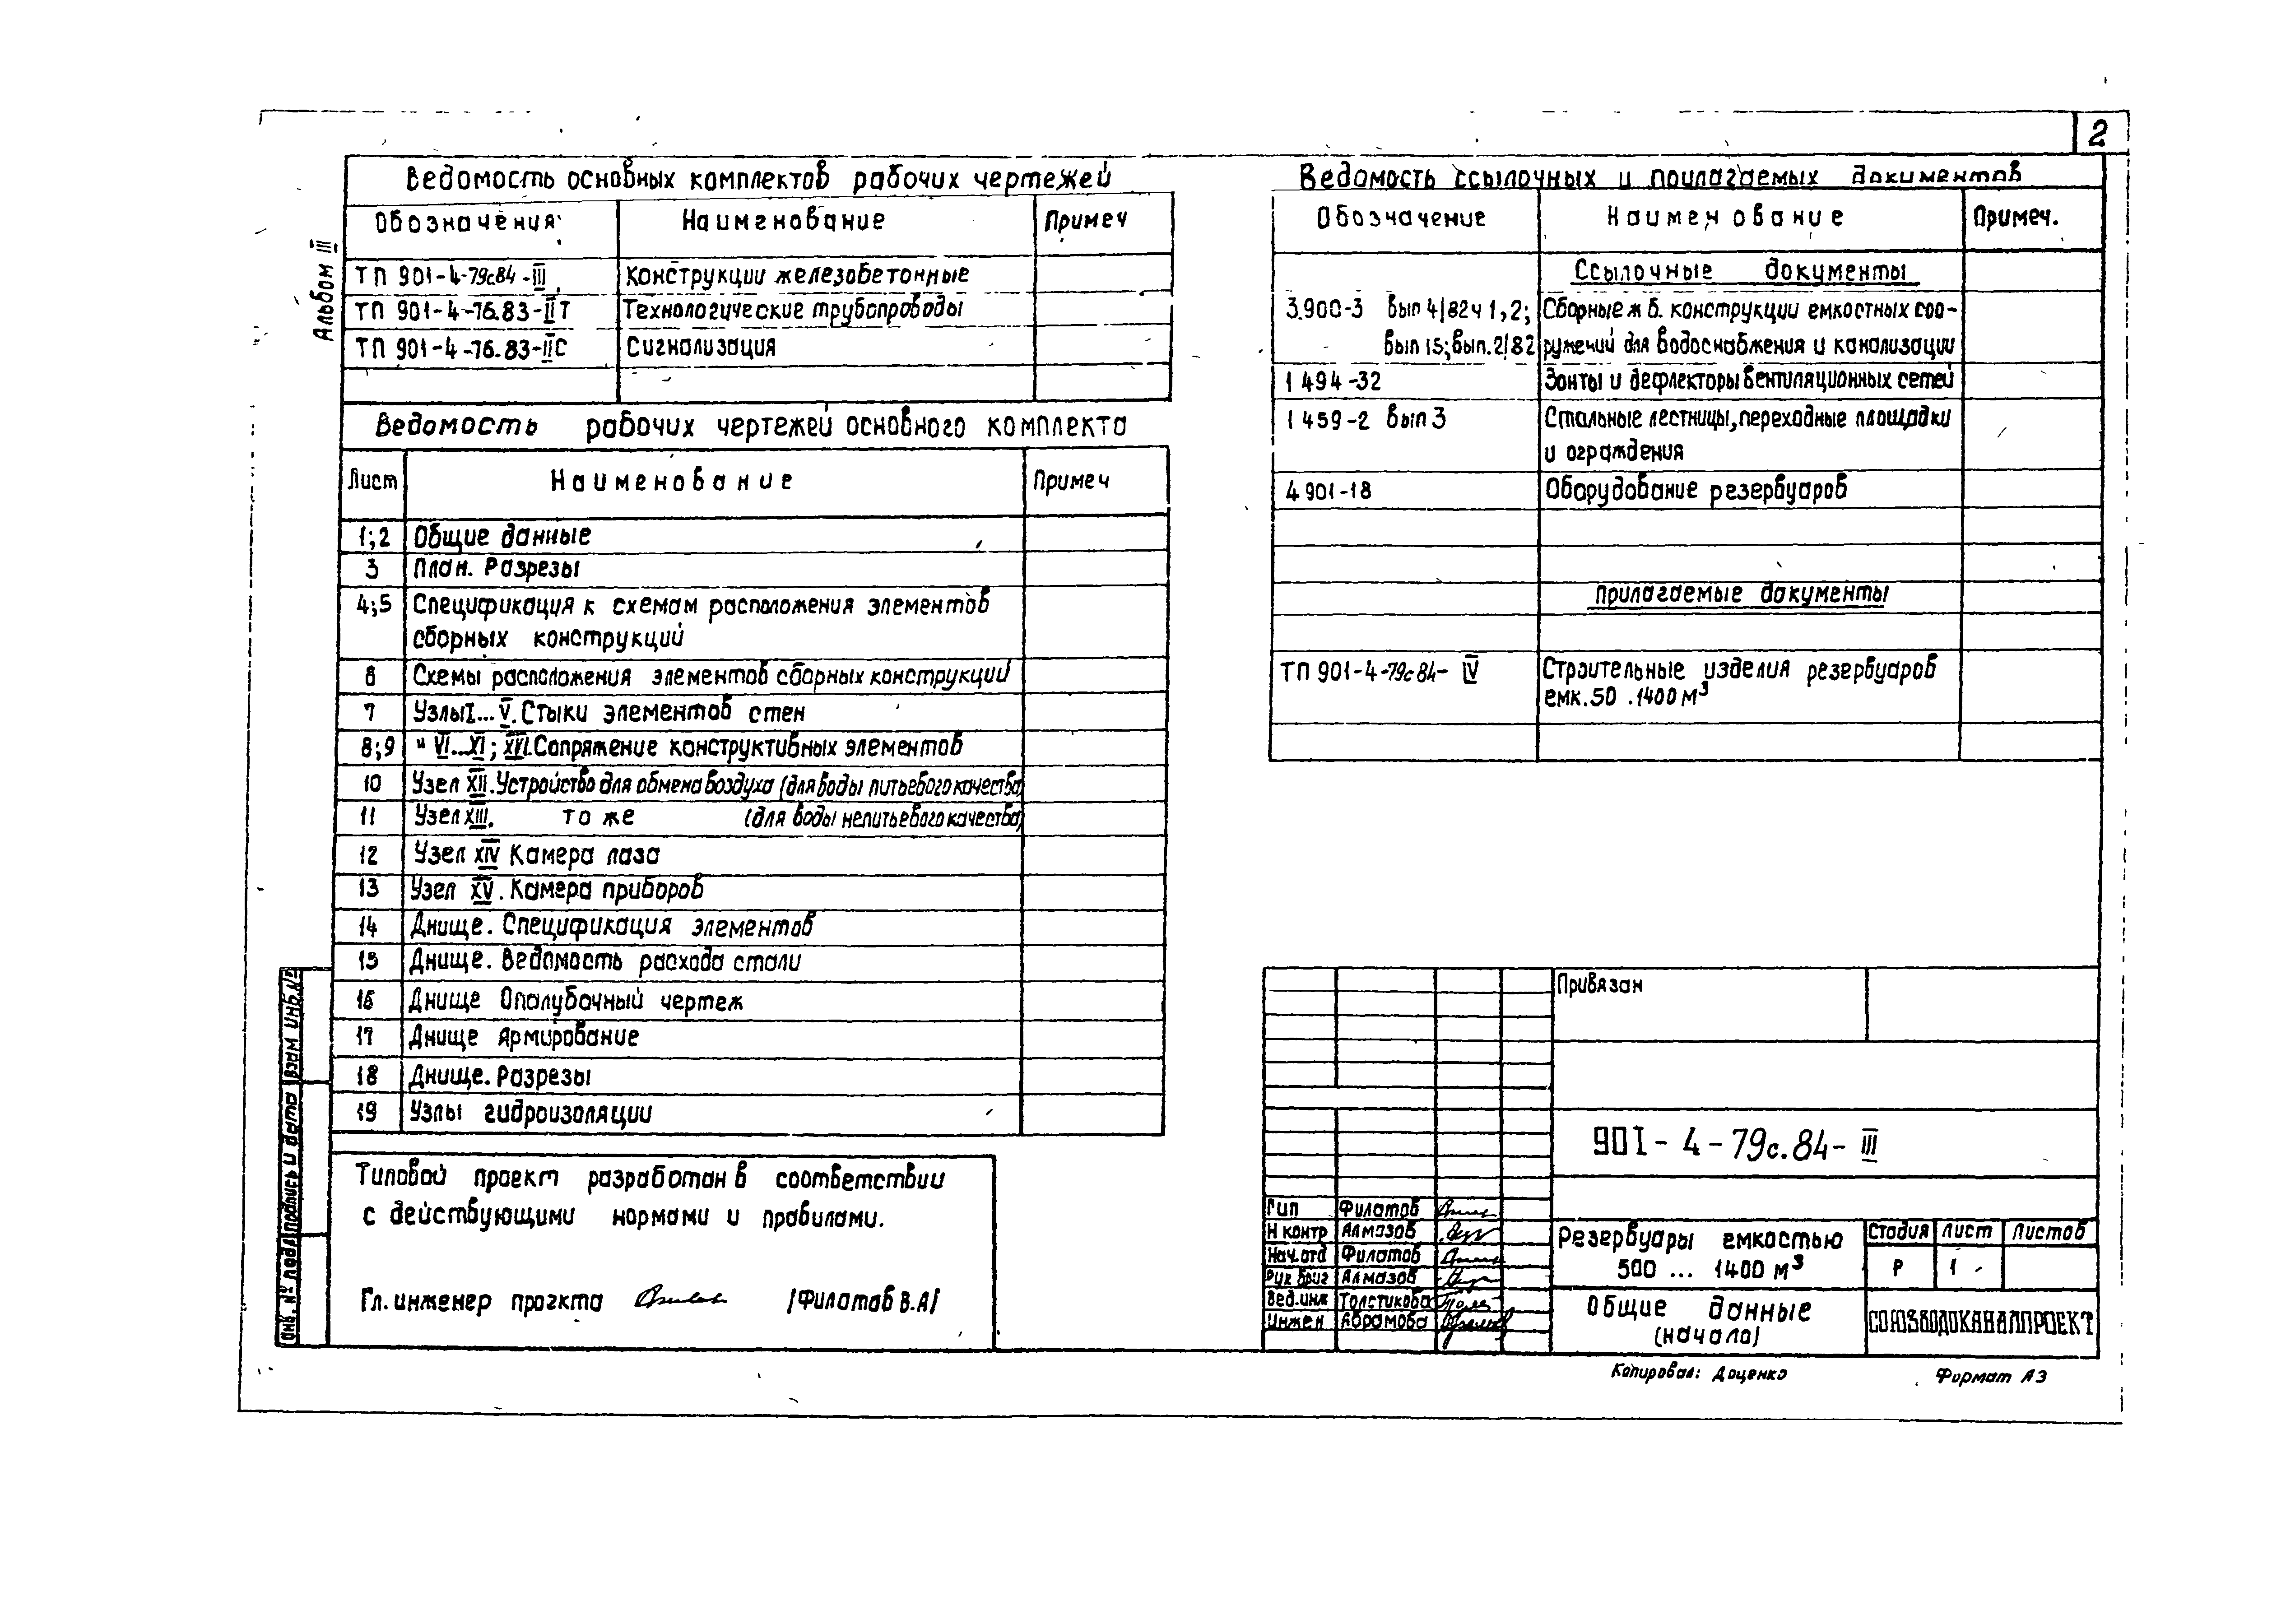 2
Альбом III
Ведомость основных комплектов рабочих чертежей
Обозначения Наименование Примеч
ТП 901-4-79с84-III Конструкции железобетонные
ТП 901-4-76.83-IIТ Технологические трубопроводы
ТП 901-4-76.83-IIС Сигнализация
Ведомость рабочих чертежей основного комплекта
Лист Наименование Примеч
1;2 Общие данные
3 План. Разрезы
4;5 Спецификация к схемам расположения элементов
сборных конструкций
6 Схемы расположения элементов сборных конструкций
7 Узлы I...V. Стыки элементов стен
8;9 " VI...XI; XVI. Сопряжение конструктивных элементов
10 Узел XII. Устройство для обмена воздуха (для воды питьевого качества)
11 Узел XIII. то же (для воды непитьевого качества)
12 Узел XIV Камера лаза
13 Узел XV. Камера приборов
14 Днище. Спецификация элементов
15 Днище. Ведомость расхода стали
16 Днище Опалубочный чертеж
17 Днище Армирование
18 Днище. Разрезы
19 Узлы гидроизоляции
Типовой проект разработан в соответствии
с действующими нормами и правилами.
Гл. инженер проекта /Филатов В.А/
Ведомость ссылочных и прилагаемых документов
Обозначение Наименование Примеч.
Ссылочные документы
3.900-3 вып 4/82 ч 1,2; Сборные ж б. конструкции емкостных соо-
вып 15; вып. 2/82 ружений для водоснабжения и канализации
1 494-32 Зонты и дефлекторы вентиляционных сетей
1 459-2 вып 3 Стальные лестницы, переходные площадки
и ограждения
4 901-18 Оборудование резервуаров
Прилагаемые документы
ТП 901-4-79с84-IV Строительные изделия резервуаров
емк. 50 . 1400 м³
Привязан
901-4-79с.84-III
Гип Филатов
Н контр Алмазов
Нач. отд Филатов
Рук бриг Алмазов
Вед. инж Толстикова
Инжен Абрамова
Резервуары емкостью
500 ... 1400 м³
Стадия Лист Листов
Р 1
Общие данные
(начало)
СОЮЗВОДОКАНАЛПРОЕКТ
Копировал: Доценко Формат А3
Инв. № подл Подпись и дата Взам инв. №